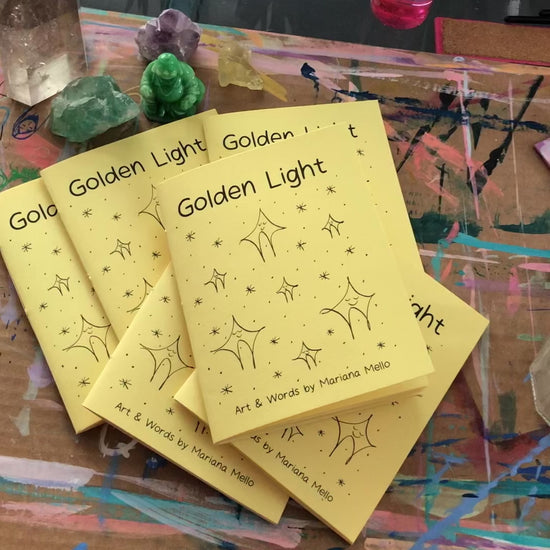 Golden Light
Golden Light
Gold
Golden Light
Art & Words by Mariana Mello
Art & Words by Mariana Mello
Words by Mariana Mello
ght